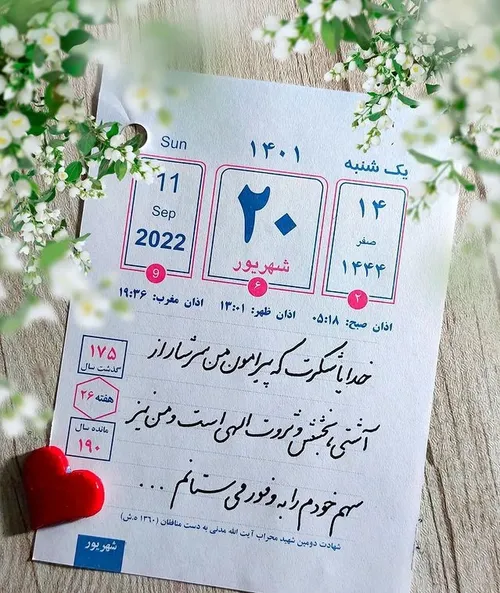 Sun
۱۴۰۱
یک شنبه
11
Sep
2022
9
۲۰
شهریور
۶
۱۴
صفر
۱۴۴۴
۲
اذان صبح: ۰۵:۱۸ اذان ظهر: ۱۳:۰۱ اذان مغرب: ۱۹:۳۶
خدایا شکرت که پیرامون من سرشار از
۱۷۵
گذشت سال
هفته ۲۶
آشتی، بخشش و ثروت الهی است و من نیز
مانده سال
۱۹۰
سهم خودم را به وفور می ستانم ...
شهادت دومین شهید محراب آیت الله مدنی به دست منافقان (۱۳۶۰ ه.ش)
شهریور